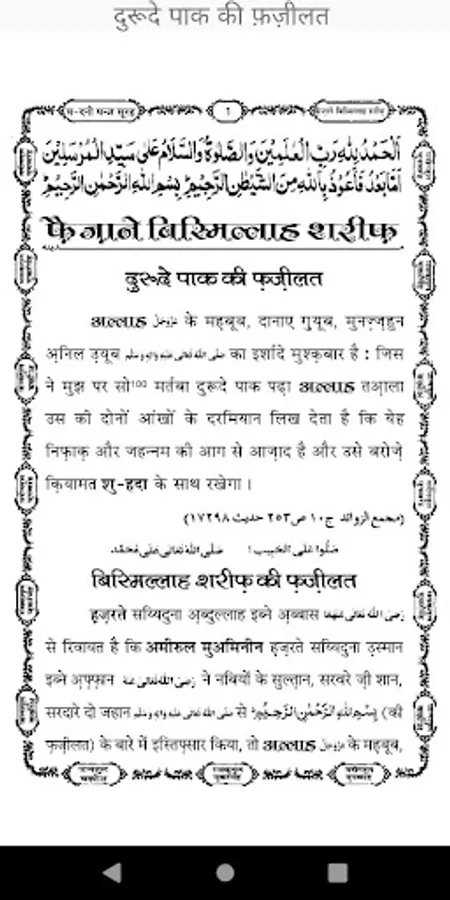 दुरूदे पाक की फ़ज़ीलत
म-दनी पन्ज सूरह
1
اَلْحَمْدُ لِلّٰهِ رَبِّ الْعٰلَمِيْنَ وَالصَّلٰوةُ وَالسَّلَامُ عَلٰى سَيِّدِ الْمُرْسَلِيْنَ
اَمَّا بَعْدُ فَاَعُوْذُ بِاللّٰهِ مِنَ الشَّيْطٰنِ الرَّجِيْمِ بِسْمِ اللّٰهِ الرَّحْمٰنِ الرَّحِيْمِ
फ़ैज़ाने बिस्मिल्लाह शरीफ़
दुरूदे पाक की फ़ज़ीलत
अल्लाह عَزَّوَجَلَّ के महबूब, दानाए गुयूब, मुनज़्ज़हुन
अ़निल उ़यूब صلى الله تعالى عليه واله وسلم का इर्शादे मुश्कबार है : जिस
ने मुझ पर सो100 मर्तबा दुरूदे पाक पढ़ा अल्लाह तआ़ला
उस की दोनों आंखों के दरमियान लिख देता है कि येह
निफ़ाक़ और जहन्नम की आग से आज़ाद है और उसे बरोज़े
क़ियामत शु-हदा के साथ रखेगा ।
(مجمع الزوائد ج١٠ ص٢٥٣ حديث ١٧٢٩٨)
صَلُّوا عَلَى الْحَبِيْب ! صَلَّى اللهُ تَعَالٰى عَلٰى مُحَمَّد
बिस्मिल्लाह शरीफ़ की फ़ज़ीलत
हज़रते सय्यिदुना अ़ब्दुल्लाह इब्ने अ़ब्बास رَضِىَ اللهُ تَعَالٰى عَنْهُمَا
से रिवायत है कि अमीरुल मुअमिनीन हज़रते सय्यिदुना उ़स्मान
इब्ने अ़फ़्फ़ान رَضِىَ اللهُ تَعَالٰى عَنْهُ ने नबियों के सुल्तान, सरवरे ज़ी शान,
सरदारे दो जहान صلى الله تعالى عليه واله وسلم से بِسْمِ اللهِ الرَّحْمٰنِ الرَّحِيْمِ (की
फ़ज़ीलत) के बारे में इस्तिफ़्सार किया, तो अल्लाह عَزَّوَجَلَّ के महबूब,